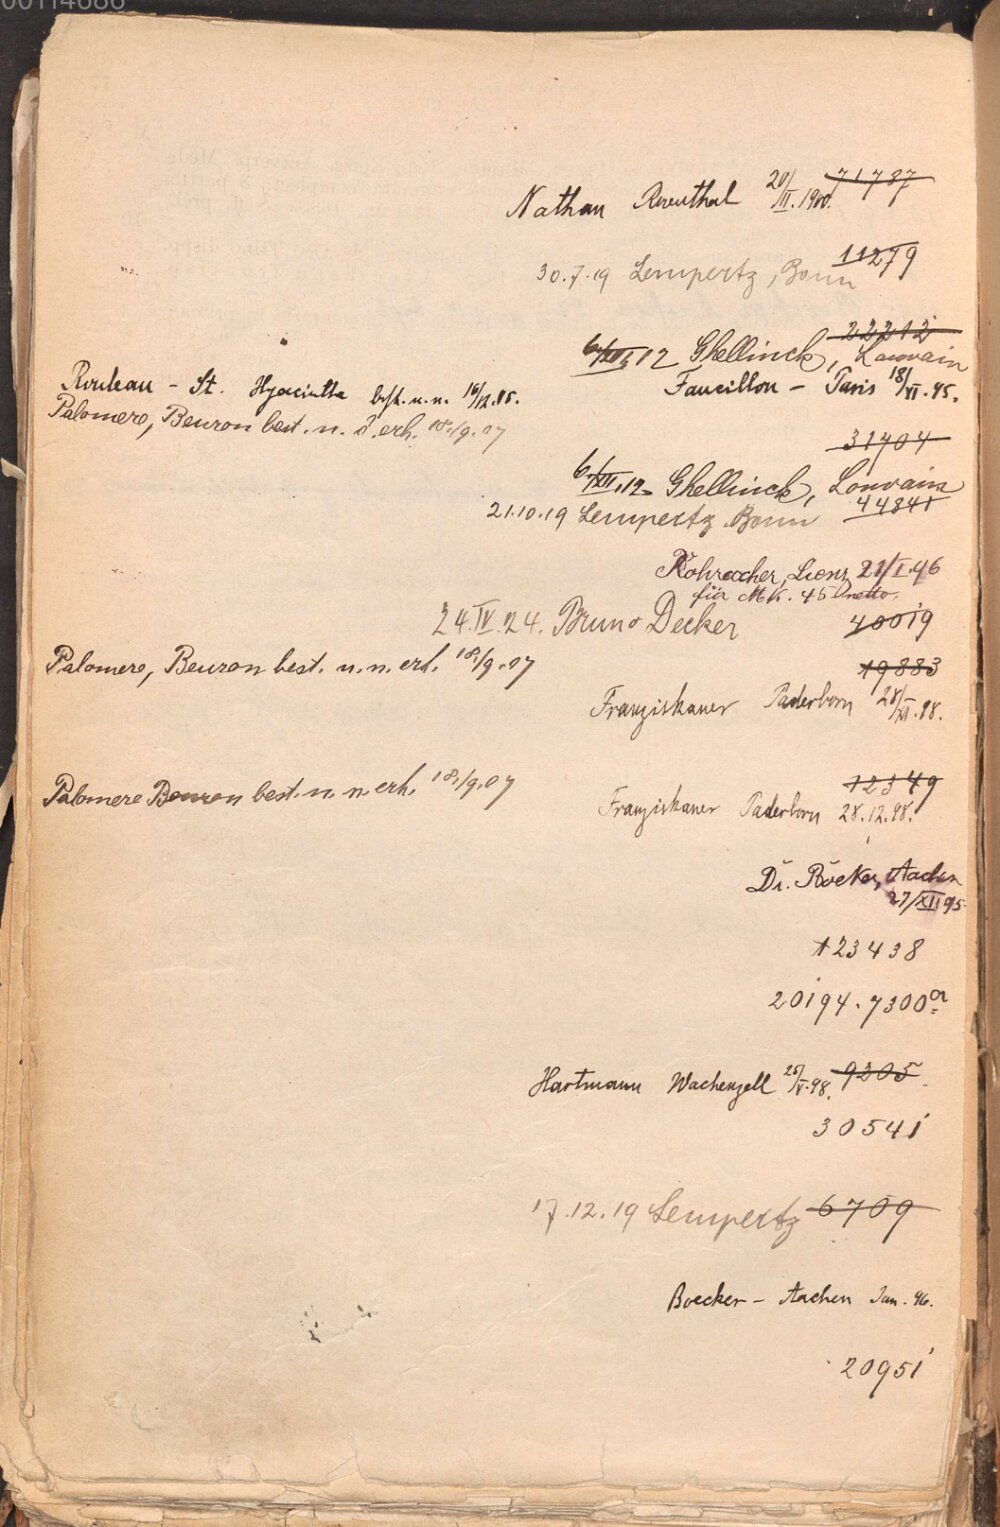 00114686
Nathan Rosenthal 20/III. 1900. 71787
11279
30.7.19 Lempertz, Bonn
22212
6/XII.12 Ghellinck, Louvain
Rouleau - St. Hyacinthe best. n. n. 16/12.95. Faucillon - Paris 18/VI. 95.
Palomero, Beuron best. n. erh. 18/9.07
31704
6/XII.12 Ghellinck, Louvain
44841
21.10.19 Lempertz Bonn
Rohracher, Lienz 21/I.46
für Mk. 45 netto.
24.IV.24. Bruno Decker 40019
Palomero, Beuron best. n. n. erh. 18/9.07 19883
Franziskaner Paderborn 28/XI.98.
12349
Palomero Beuron best. n. n. erh. 18/9.07 Franziskaner Paderborn 28.12.98.
Dr. Böcker, Aachen
27/XII 95
123438
20194. 7300a
Hartmann Wachenzell 25/V.98. 9205
30541
17.12.19 Lempertz 6709
Boecker - Aachen Jan. 96.
20951